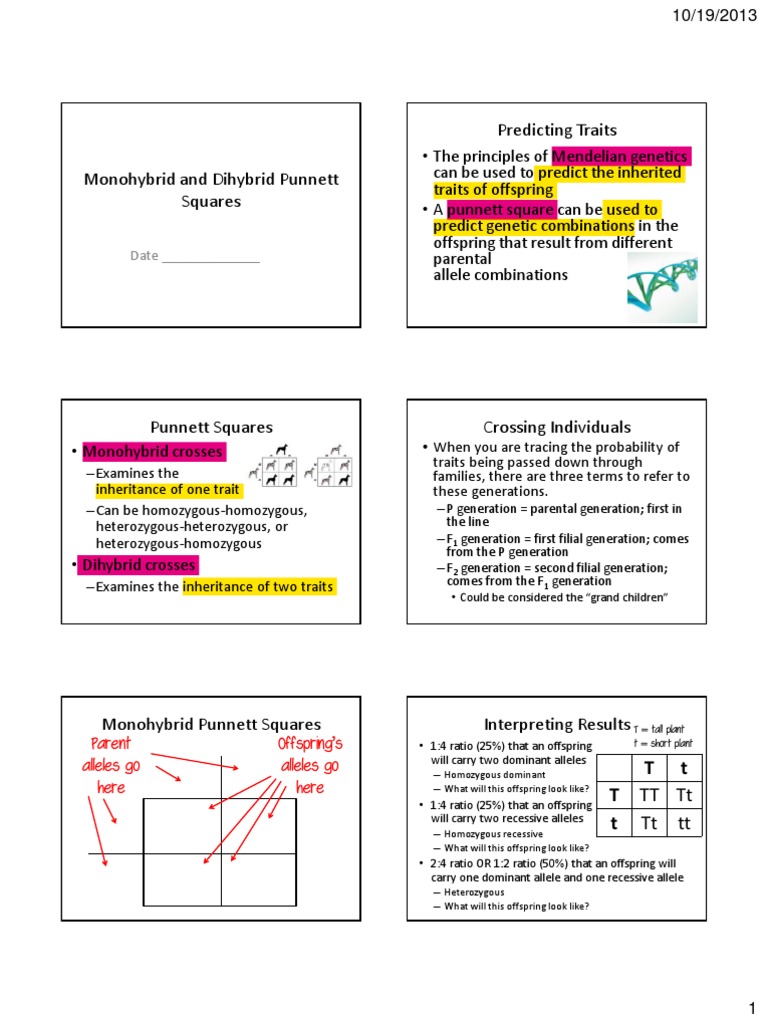 10/19/2013
Monohybrid and Dihybrid Punnett
Squares
Date ______________
Predicting Traits
• The principles of Mendelian genetics
can be used to predict the inherited
traits of offspring
• A punnett square can be used to
predict genetic combinations in the
offspring that result from different
parental
allele combinations
Punnett Squares
• Monohybrid crosses
–Examines the
inheritance of one trait
–Can be homozygous-homozygous,
heterozygous-heterozygous, or
heterozygous-homozygous
• Dihybrid crosses
–Examines the inheritance of two traits
Crossing Individuals
• When you are tracing the probability of
traits being passed down through
families, there are three terms to refer to
these generations.
–P generation = parental generation; first in
the line
–F1 generation = first filial generation; comes
from the P generation
–F2 generation = second filial generation;
comes from the F1 generation
• Could be considered the “grand children”
Monohybrid Punnett Squares
Parent
alleles go
here
Offspring's
alleles go
here
Interpreting Results
T = tall plant
t = short plant
• 1:4 ratio (25%) that an offspring
will carry two dominant alleles
– Homozygous dominant
– What will this offspring look like?
• 1:4 ratio (25%) that an offspring
will carry two recessive alleles
– Homozygous recessive
– What will this offspring look like?
• 2:4 ratio OR 1:2 ratio (50%) that an offspring will
carry one dominant allele and one recessive allele
– Heterozygous
– What will this offspring look like?
T t
T TT Tt
t Tt tt
1